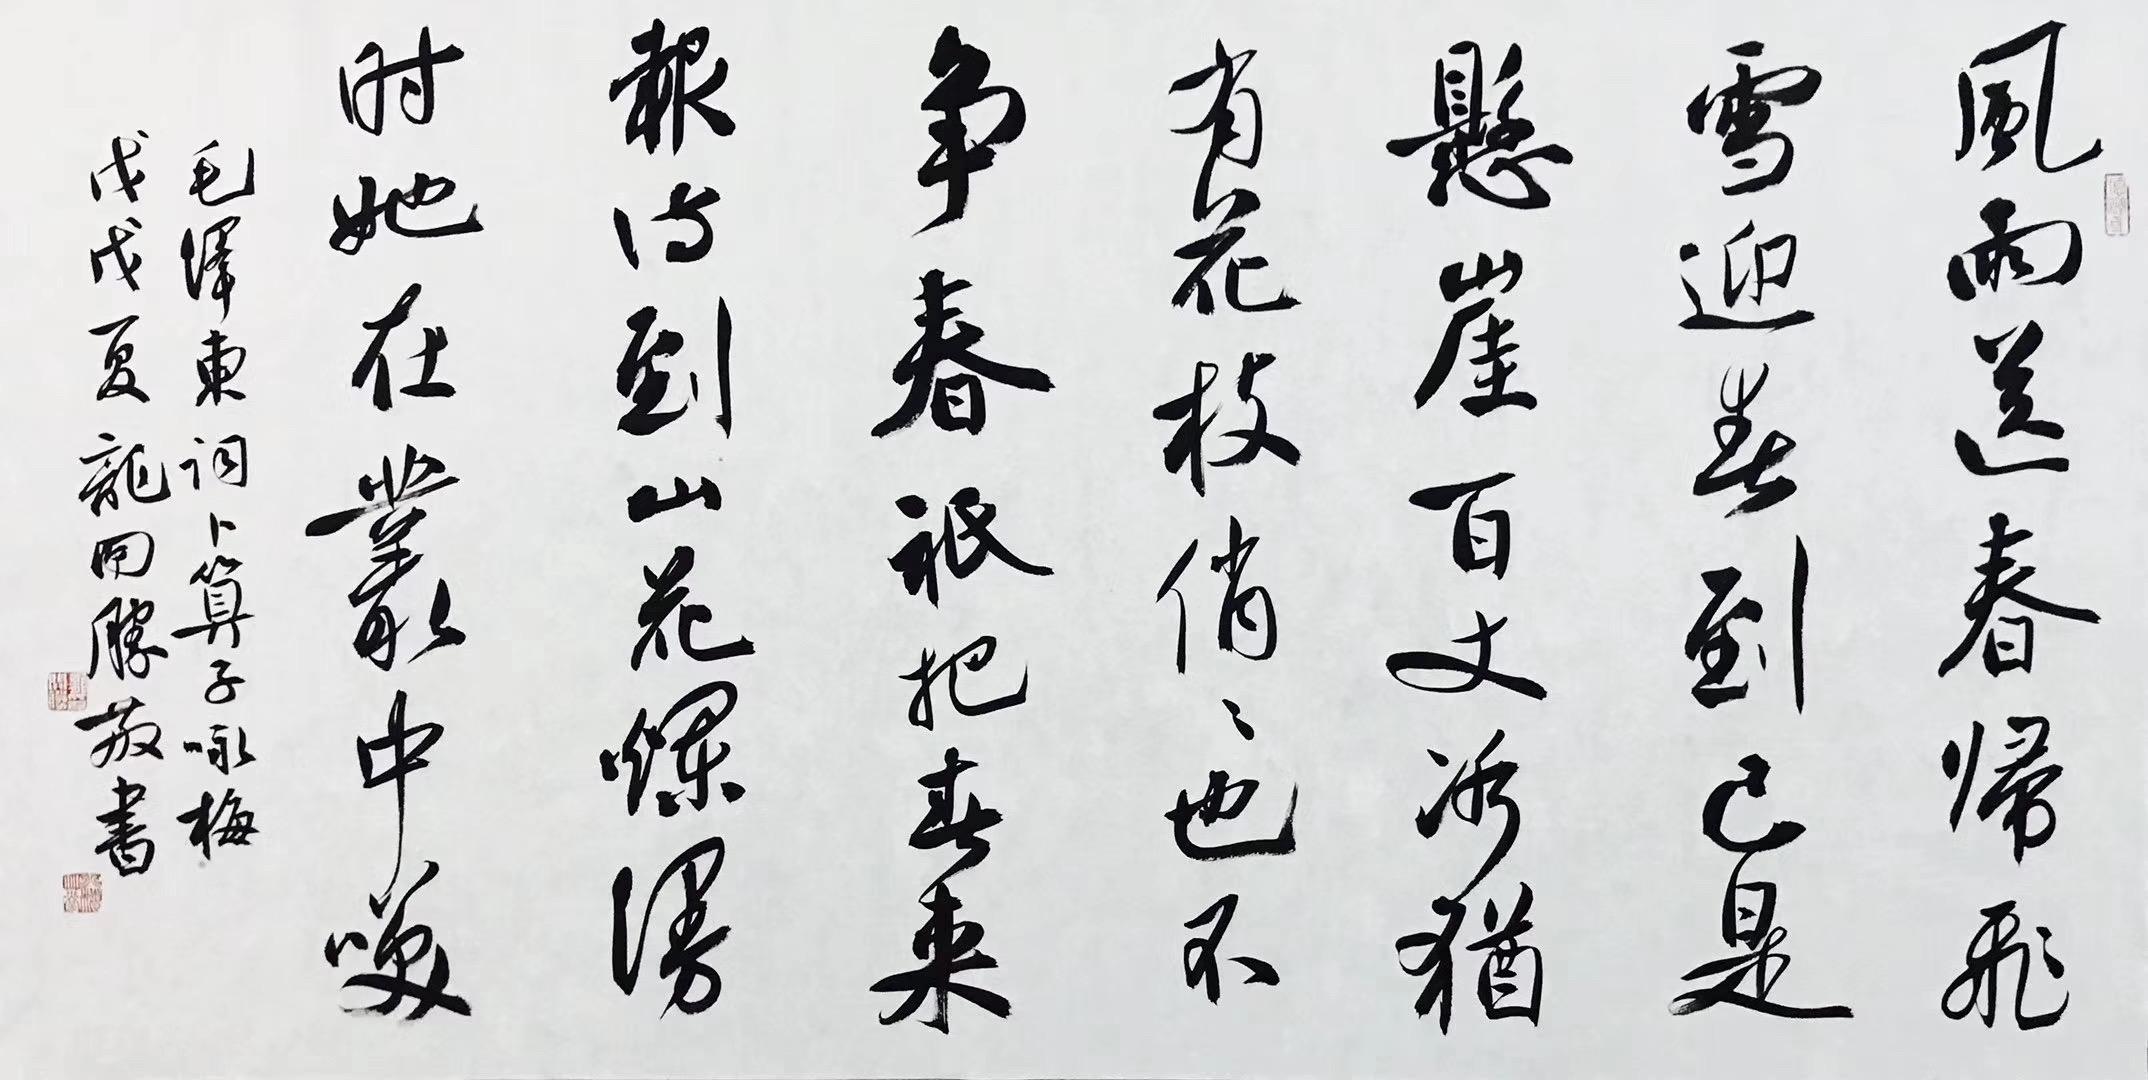 風雨送春帰飛
雪迎春到已是
懸崖百丈冰猶
有花枝俏〻也不
争春祇把春来
報待到山花爛漫
时她在叢中笑
毛澤東词卜算子咏梅
戊戌夏龍国勝敬書